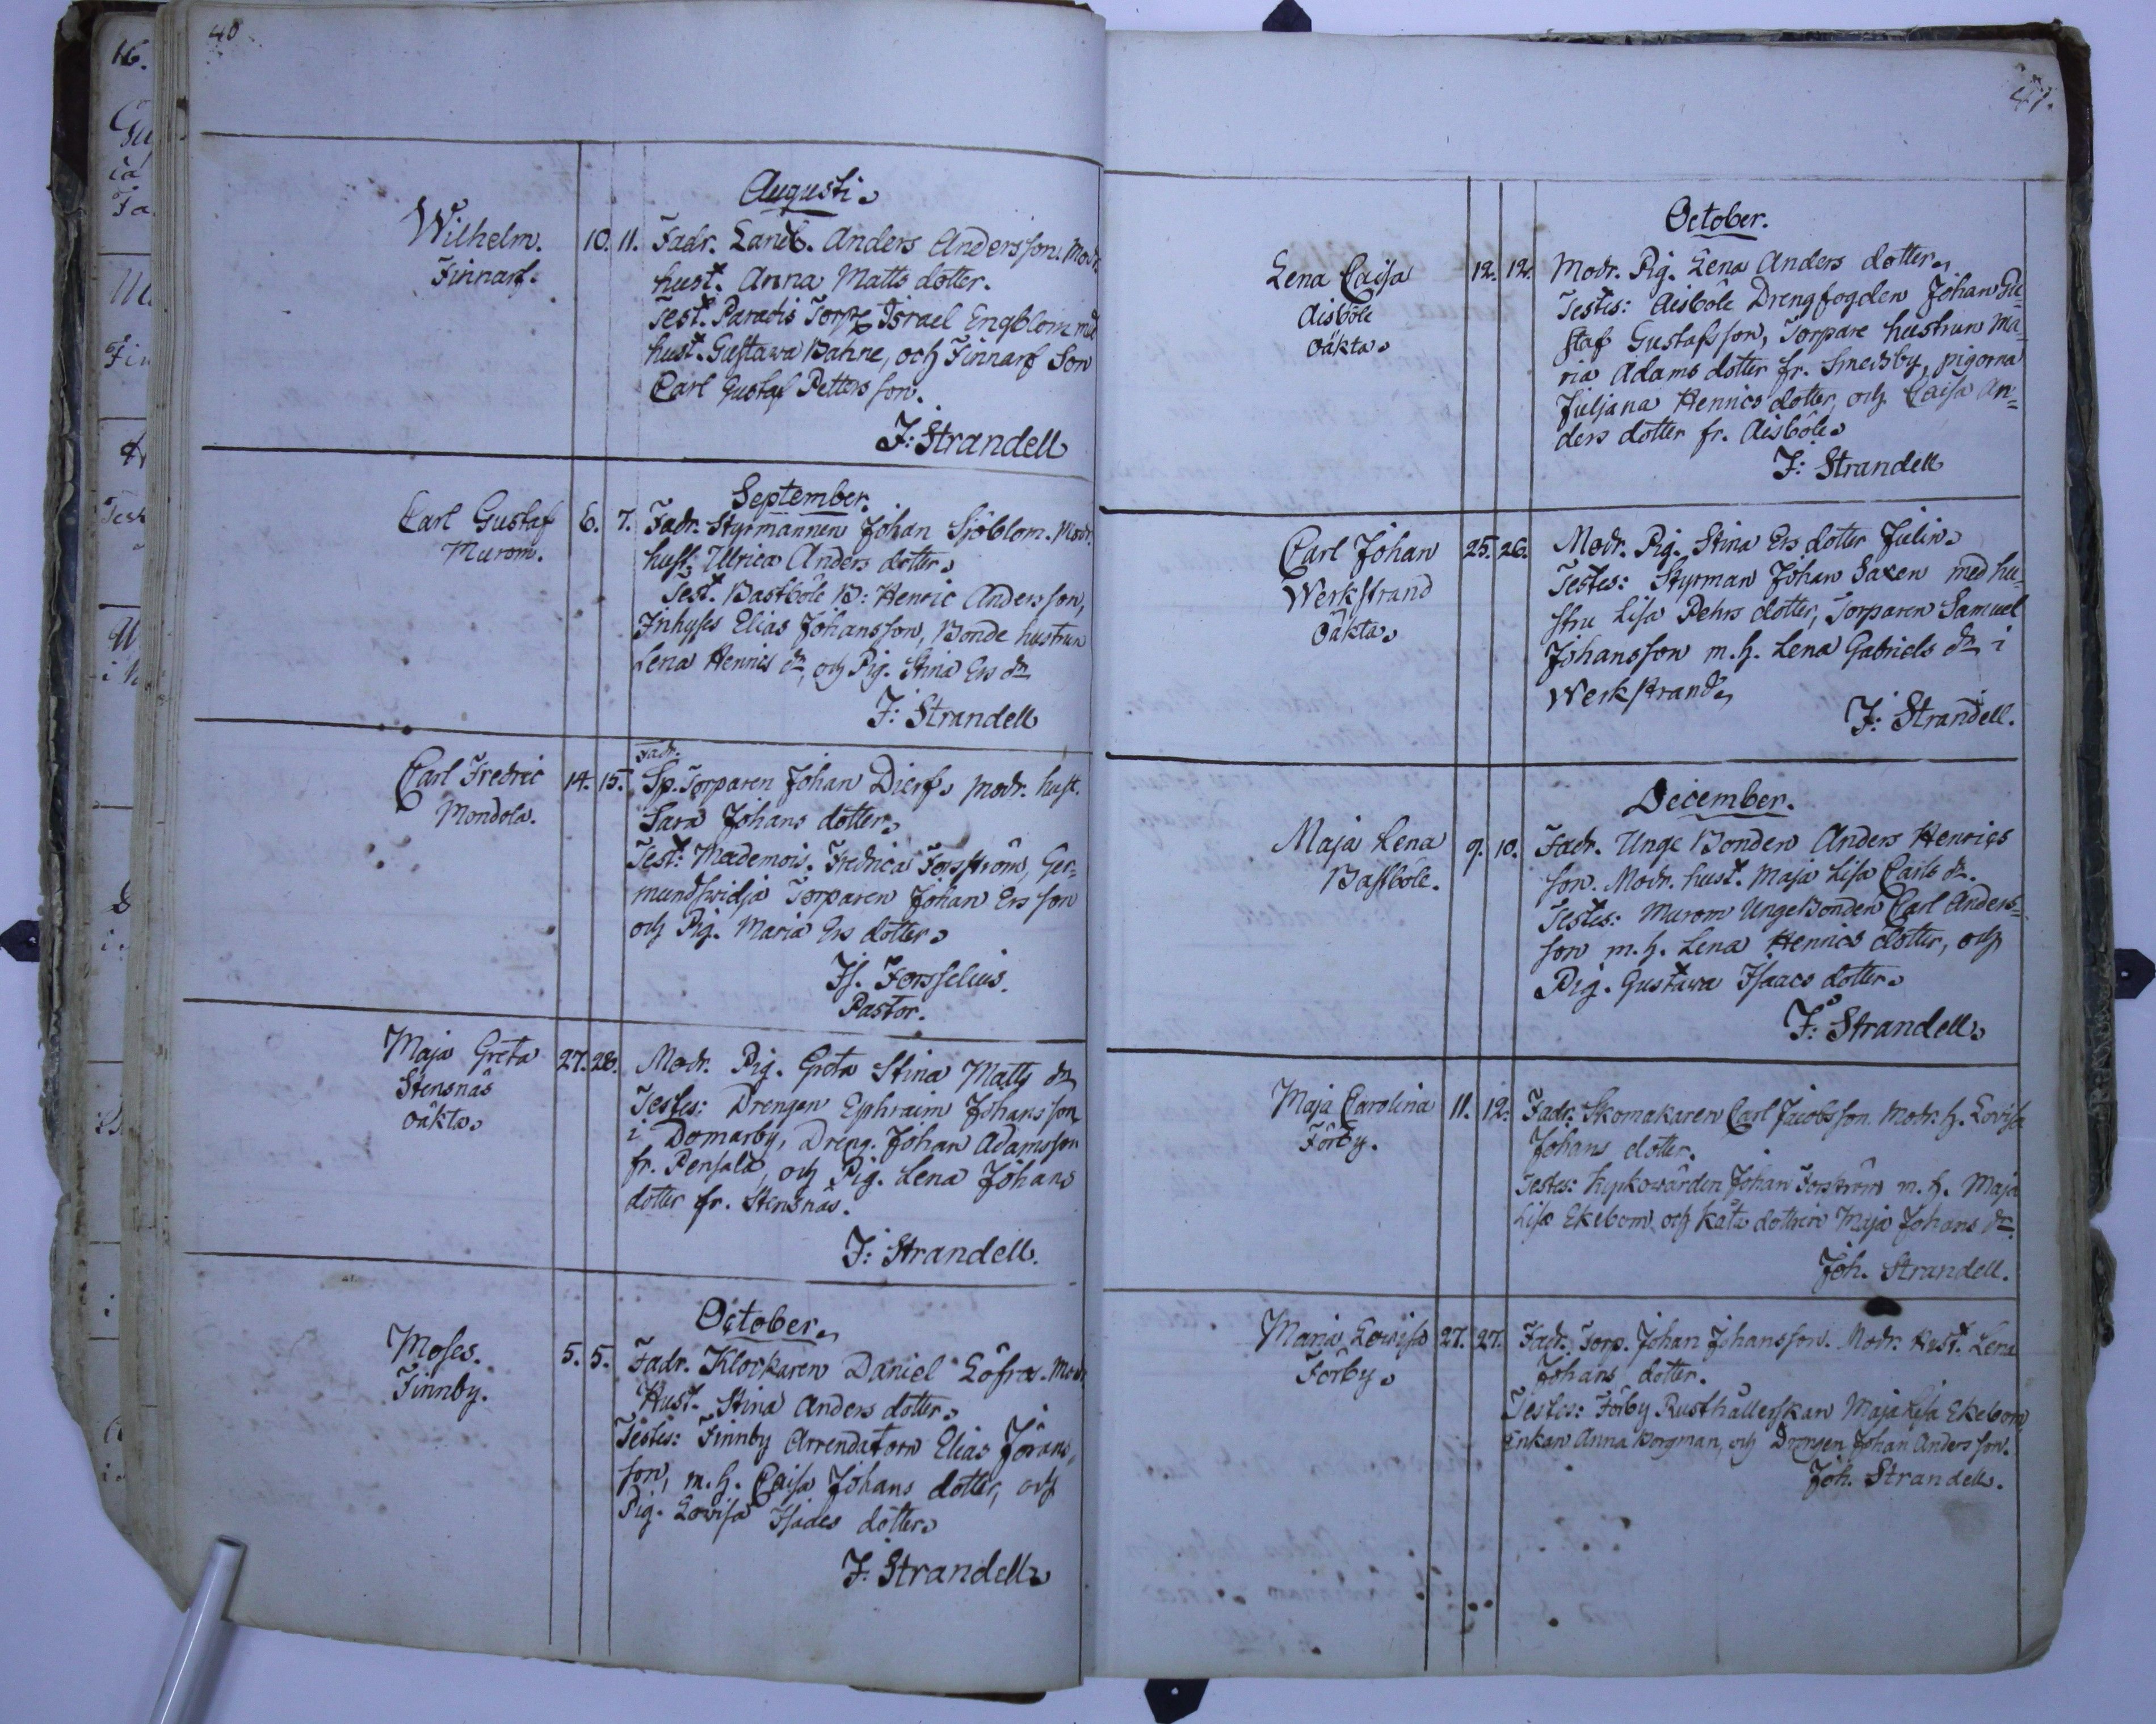 40
Augusti.
Wilhelm. 10. 11. Fadr. Landb. Anders Andersson. Modr.
Finnarf. hust. Anna Matts dotter.
Test. Paradis Torp. Israel Engblom med
hust. Gustawa Bahne, och Finnarf Son
Carl Gustaf Petters son.
J: Strandell
September.
Carl Gustaf 6. 7. Fadr. Styrmannen Johan Sjöblom. Modr.
Murom. hust. Ulrica Anders dotter.
Test. Bastböle B: Henric Andersson,
Inhyses Elias Johansson, Bonde hustrun
Lena Henrics dr, och Pig. Stina Ers dr
J: Strandell
Fadr.
Carl Fredric 14. 15. Sp. Torparen Johan Dierf. Modr. hust.
Mondola. Sara Johans dotter.
Test: Mademois. Fredrica Forsström, Ger=
mundswidja Torparen Johan Ers son
och Pig. Maria Ers dotter.
Is. Forsselius.
Pastor.
Maja Greta 27. 28. Modr. Pig. Greta Stina Matts dr
Stensnäs Testes: Drengen Ephraim Johansson
oäkta. i Domarby, Dreng. Johan Adamsson
fr. Pensala, och Pig. Lena Johans
dotter fr. Stensnäs.
J: Strandell.
October.
Moses. 5. 5. Fadr. Klockaren Daniel Modr.
Finnby. Hust. Stina Anders dotter.
Testes: Finnby Arrendatorn Elias Jörans
son, m. h. Caisa Johans dotter, och
Pig. Lovisa dotter.
J: Strandell
41.
October.
Lena Caisa 12. 12. Modr. Pig. Lena Anders dotter.
Aisböle Testes: Aisböle Drengfogden Johan Gu=
oäkta. staf Gustafsson, Torpare hustrun Ma=
ria Adams dotter fr. Smedsby, pigorna
Juljana Henrics dotter, och Caisa An=
ders dotter fr. Aisböle.
J: Strandell
Carl Johan 25. 26. Modr. Pig. Stina Ers dotter Julin.
Werkstrand Testes: Styrman Johan Saxen med hu=
oäkta. stru Lisa Pehrs dotter, Torparen Samuel
Johansson m. h. Lena Gabriels dr i
Werkstrand.
J: Strandell.
December.
Maja Lena 9. 10. Fadr. Unge Bonden Anders Henrics
Bastböle. son. Modr. hust. Maja Lisa Carls dr.
Testes: Murom Unge Bonden Carl Anders=
son m. h. Lena Henrics dotter, och
Pig. Gustawa Isaacs dotter.
J: Strandell.
Maja Carolina 11. 12. Fadr. Skomakaren Carl Jacobsson. Modr. h. Lovisa
Förby. Johans dotter.
Testes: Kyrkowärden Johan Forsström m. h. Maja
Lisa Ekebom och dottren Maja Johans dr.
Joh. Strandell.
Maria Lowisa 27. 27. Fadr. Torp. Johan Johansson. Modr. Hust. Lena
Förby. Johans dotter.
Testes: Förby Rusthållerskan Maja Lisa Ekebom,
Enkan Anna Borgman, och Drengen Johan Anders son.
Joh. Strandell.